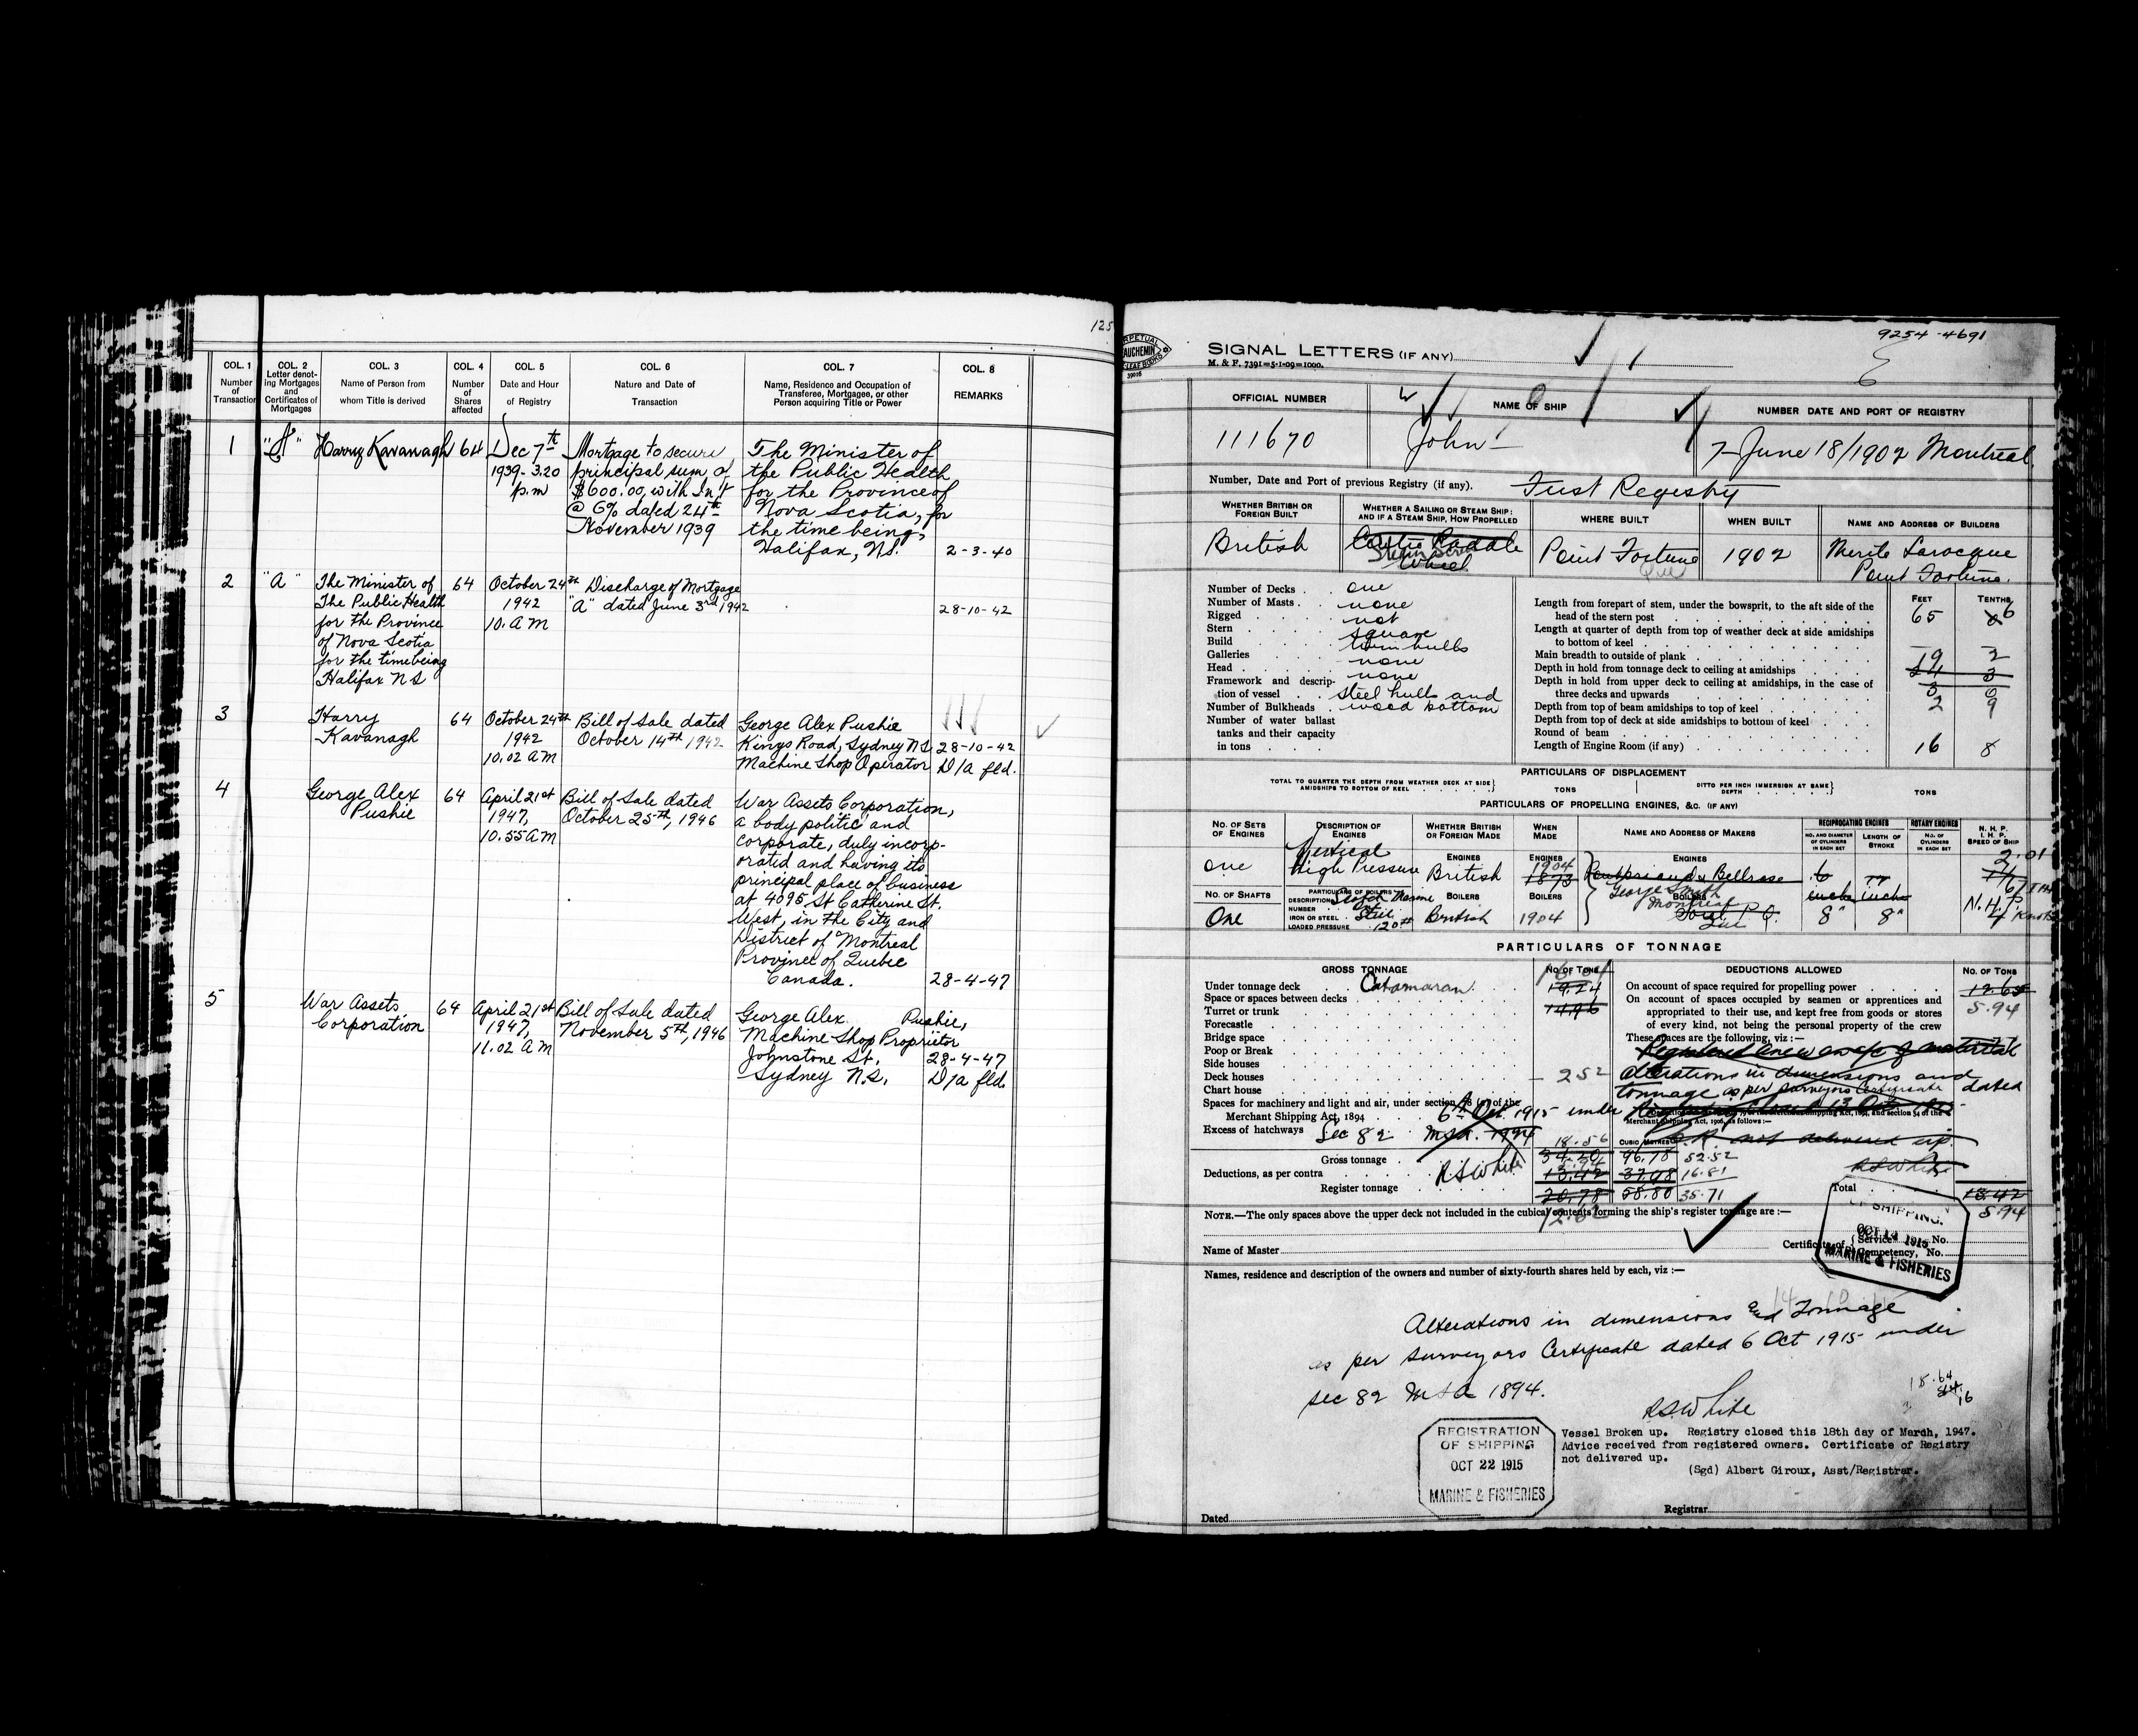 125
COL. 1
Number
of
Transaction
COL. 2
Letter denot-
ing Mortgages
and
Certificates of
Mortgages
COL. 3
Name of Person from
whom Title is derived
COL. 4
Number
of
Shares
affected
COL. 5
Date and Hour
of Registry
COL. 6
Nature and Date of
Transaction
COL. 7
Name, Residence and Occupation of
Transferee, Mortgagee, or other
Person acquiring Title or Power
COL. 8
REMARKS
1
"A"
Harry Kavanagh
64
Dec 7th
1939 - 3.20
p.m
Mortgage to secure
principal sum of
$600.00, with Int
@ 6% dated 24th
November 1939
The Minister of
the Public Health
for the Province of
Nova Scotia, for
the time being,
Halifax, N.S.
2-3-40
2
"A"
The Minister of
The Public Health
for the Province
of Nova Scotia
for the time being
Halifax NS
64
October 24th
1942
10. A M
Discharge of Mortgage
"A" dated June 3rd 1942
28-10-42
3
Harry
Kavanagh
64
October 24th
1942
10.02 A M
Bill of Sale dated
October 14th 1942
George Alex Pushie
Kings Road, Sydney N.S.
Machine Shop Operator
28-10-42
D/a fld.
4
George Alex
Pushie
64
April 21st
1947,
10.55 A M
Bill of Sale dated
October 25th, 1946
War Assets Corporation,
a body politic and
corporate, duly incorp-
orated and having its
principal place of business
at 4095 St Catherine St.
West, in the City and
District of Montreal
Province of Quebec
Canada.
28-4-47
5
War Assets
Corporation
64
April 21st
1947,
11.02 A M
Bill of Sale dated
November 5th, 1946
George Alex. Pushie,
Machine Shop Proprietor
Johnstone St.
Sydney N.S.
28-4-47
D/a fld.
9254-4691
SIGNAL LETTERS (IF ANY)
M. & F. 7391=5-1-09=1000.
OFFICIAL NUMBER
NAME OF SHIP
NUMBER DATE AND PORT OF REGISTRY
111670
John
7-June 18/1902 Montreal
Number, Date and Port of previous Registry (if any).
First Registry
WHETHER BRITISH OR
FOREIGN BUILT
WHETHER A SAILING OR STEAM SHIP:
AND IF A STEAM SHIP, HOW PROPELLED
WHERE BUILT
WHEN BUILT
NAME AND ADDRESS OF BUILDERS
British
Wheel
Point Fortune
Que
1902
Larocque
Point Fortune.
Number of Decks
one
Number of Masts
none
Rigged
not
Stern
square
Build
twin hulls
Galleries
none
Head
none
Framework and descrip-
tion of vessel
steel hulls and
Number of Bulkheads
wood bottom
Number of water ballast
tanks and their capacity
in tons
FEET
TENTHS
Length from forepart of stem, under the bowsprit, to the aft side of the
head of the stern post
65 6
Length at quarter of depth from top of weather deck at side amidships
to bottom of keel
Main breadth to outside of plank
19 2
Depth in hold from tonnage deck to ceiling at amidships
Depth in hold from upper deck to ceiling at amidships, in the case of
three decks and upwards
3 0
Depth from top of beam amidships to top of keel
2 9
Depth from top of deck at side amidships to bottom of keel
Round of beam
Length of Engine Room (if any)
16 8
PARTICULARS OF DISPLACEMENT
TOTAL TO QUARTER THE DEPTH FROM WEATHER DECK AT SIDE
AMIDSHIPS TO BOTTOM OF KEEL
TONS
DITTO PER INCH IMMERSION AT SAME
DEPTH
TONS
PARTICULARS OF PROPELLING ENGINES, &C. (IF ANY)
NO. OF SETS
OF ENGINES
DESCRIPTION OF
ENGINES
WHETHER BRITISH
OR FOREIGN MADE
WHEN
MADE
NAME AND ADDRESS OF MAKERS
RECIPROCATING ENGINES
NO. AND DIAMETER
OF CYLINDERS
IN EACH SET
LENGTH OF
STROKE
ROTARY ENGINES
NO. OF
CYLINDERS
IN EACH SET
N. H. P.
I. H. P.
SPEED OF SHIP
ENGINES
ENGINES
ENGINES
one
Vertical
High Pressure
British
1904
1873
Bellrose
2.01
George Smith
Montreal
NO. OF SHAFTS
One
PARTICULARS OF BOILERS
DESCRIPTION
NUMBER
IRON OR STEEL Steel
LOADED PRESSURE 120
BOILERS
British
BOILERS
1904
BOILERS
8" 8"
N.H.P.
7 Knots
PARTICULARS OF TONNAGE
GROSS TONNAGE
NO. OF TONS
DEDUCTIONS ALLOWED
NO. OF TONS
Under tonnage deck
Catamaran
19.24
Space or spaces between decks
Turret or trunk
Forecastle
Bridge space
Poop or Break
Side houses
Deck houses
2 52
Chart house
Spaces for machinery and light and air, under section 78 (2) of the
Merchant Shipping Act, 1894
Excess of hatchways
On account of space required for propelling power
On account of spaces occupied by seamen or apprentices and
appropriated to their use, and kept free from goods or stores
of every kind, not being the personal property of the crew
5.94
These spaces are the following, viz :—
Registered anew on a/c of material
alterations in dimensions and
tonnage as per surveyors Certificate dated
6th Oct 1915 under
Sec 82 MSA. 1894
RSWhite
not delivered up.
RSWhite
18.56
CUBIC METRES
Gross tonnage
34.20 96.78 52.52
Deductions, as per contra
13.42 37.98 16.81
Register tonnage
20.78 58.80 35.71
Total
13.42
5.94
NOTE.—The only spaces above the upper deck not included in the cubical contents forming the ship's register tonnage are :—
12.62
Name of Master
Certificate of
Service No.
Competency, No.
OF SHIPPING.
OCT 14 1915
MARINE & FISHERIES
Names, residence and description of the owners and number of sixty-fourth shares held by each, viz :—
Alterations in dimensions and Tonnage
as per surveyors Certificate dated 6 Oct 1915 under
sec 82 MSA 1894.
RSWhite
18.64
16
REGISTRATION
OF SHIPPING
OCT 22 1915
MARINE & FISHERIES
Vessel Broken up. Registry closed this 18th day of March, 1947.
Advice received from registered owners. Certificate of Registry
not delivered up.
(Sgd) Albert Giroux, Asst/Registrar.
Dated
Registrar